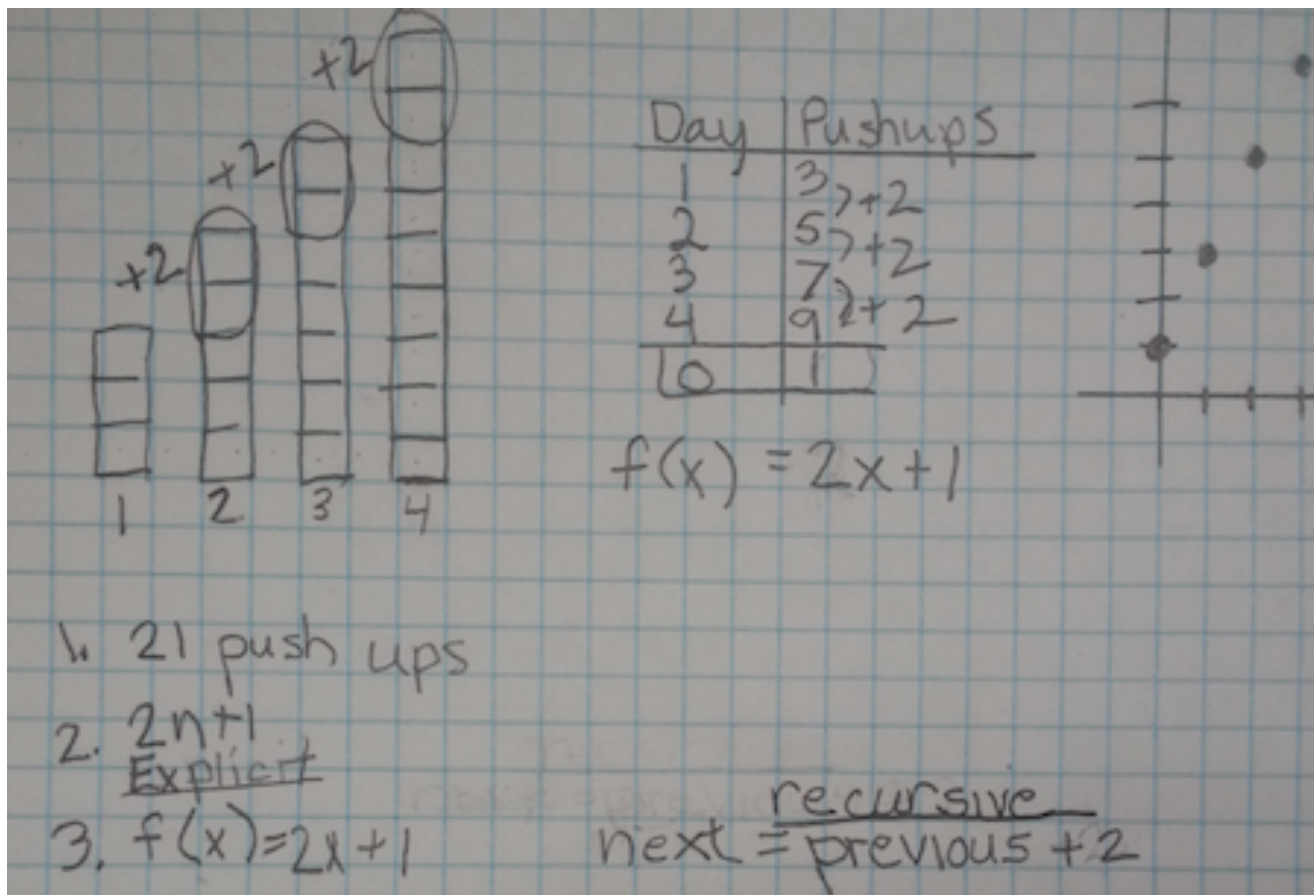 +2
+2
+2
1 2 3 4
Day Pushups
1 3 +2
2 5 +2
3 7 +2
4 9
0 1
f(x) = 2x+1
1. 21 push ups
2. 2n+1
Explicit
3. f(x)=2x+1
recursive
next = previous +2